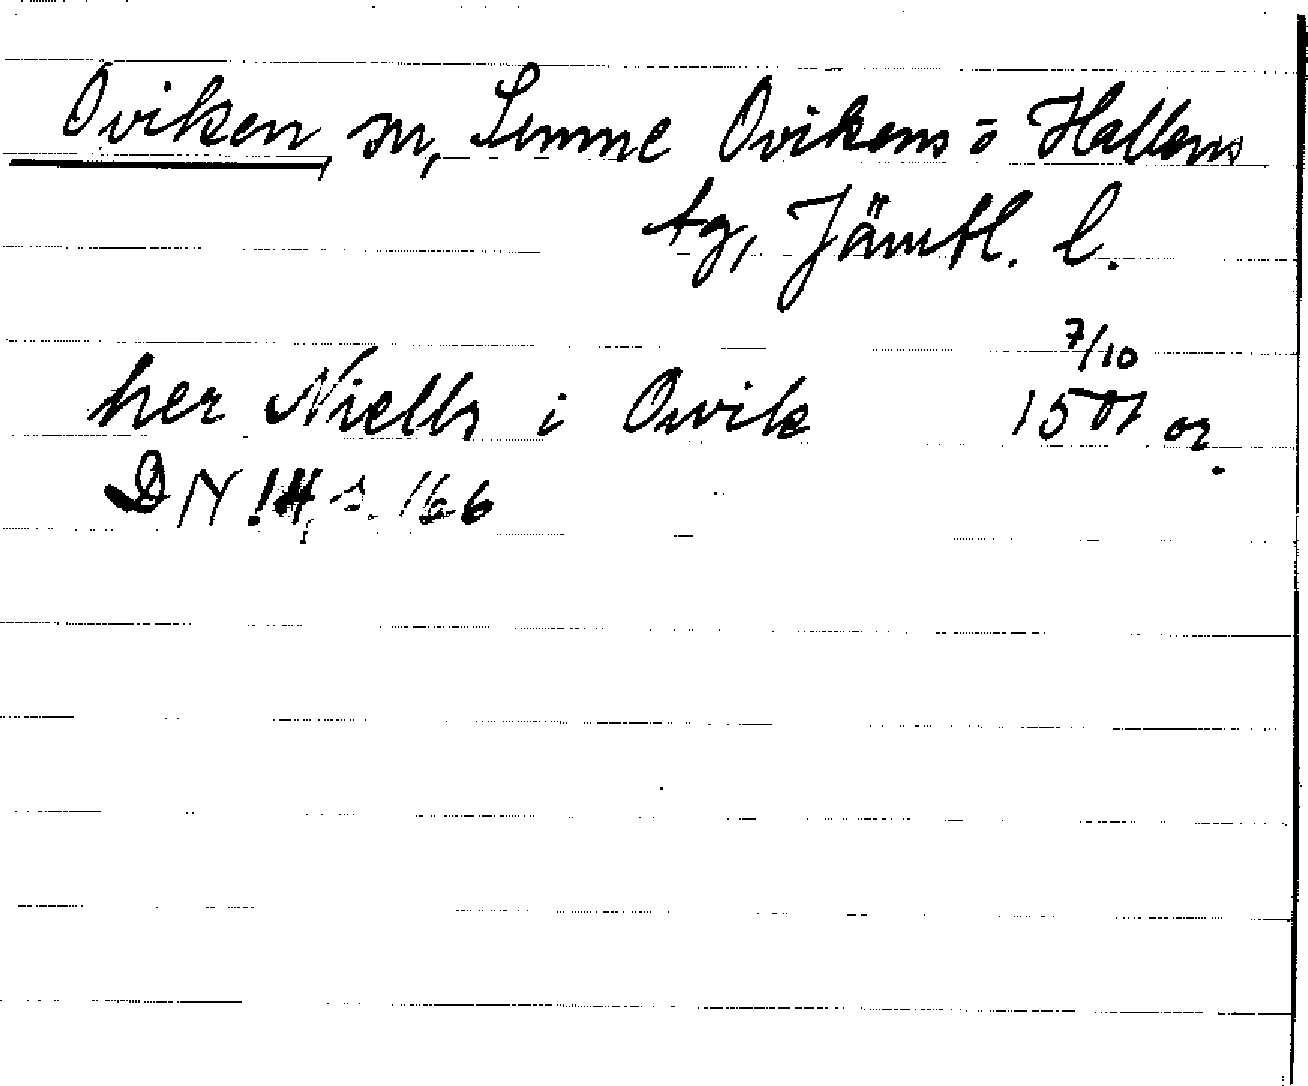 Oviken, sn, Sunne Ovikens o Hallens
tg, Jämtl. l.
her Niells i Owik 7/10 1501 or.
DN 14, s. 166